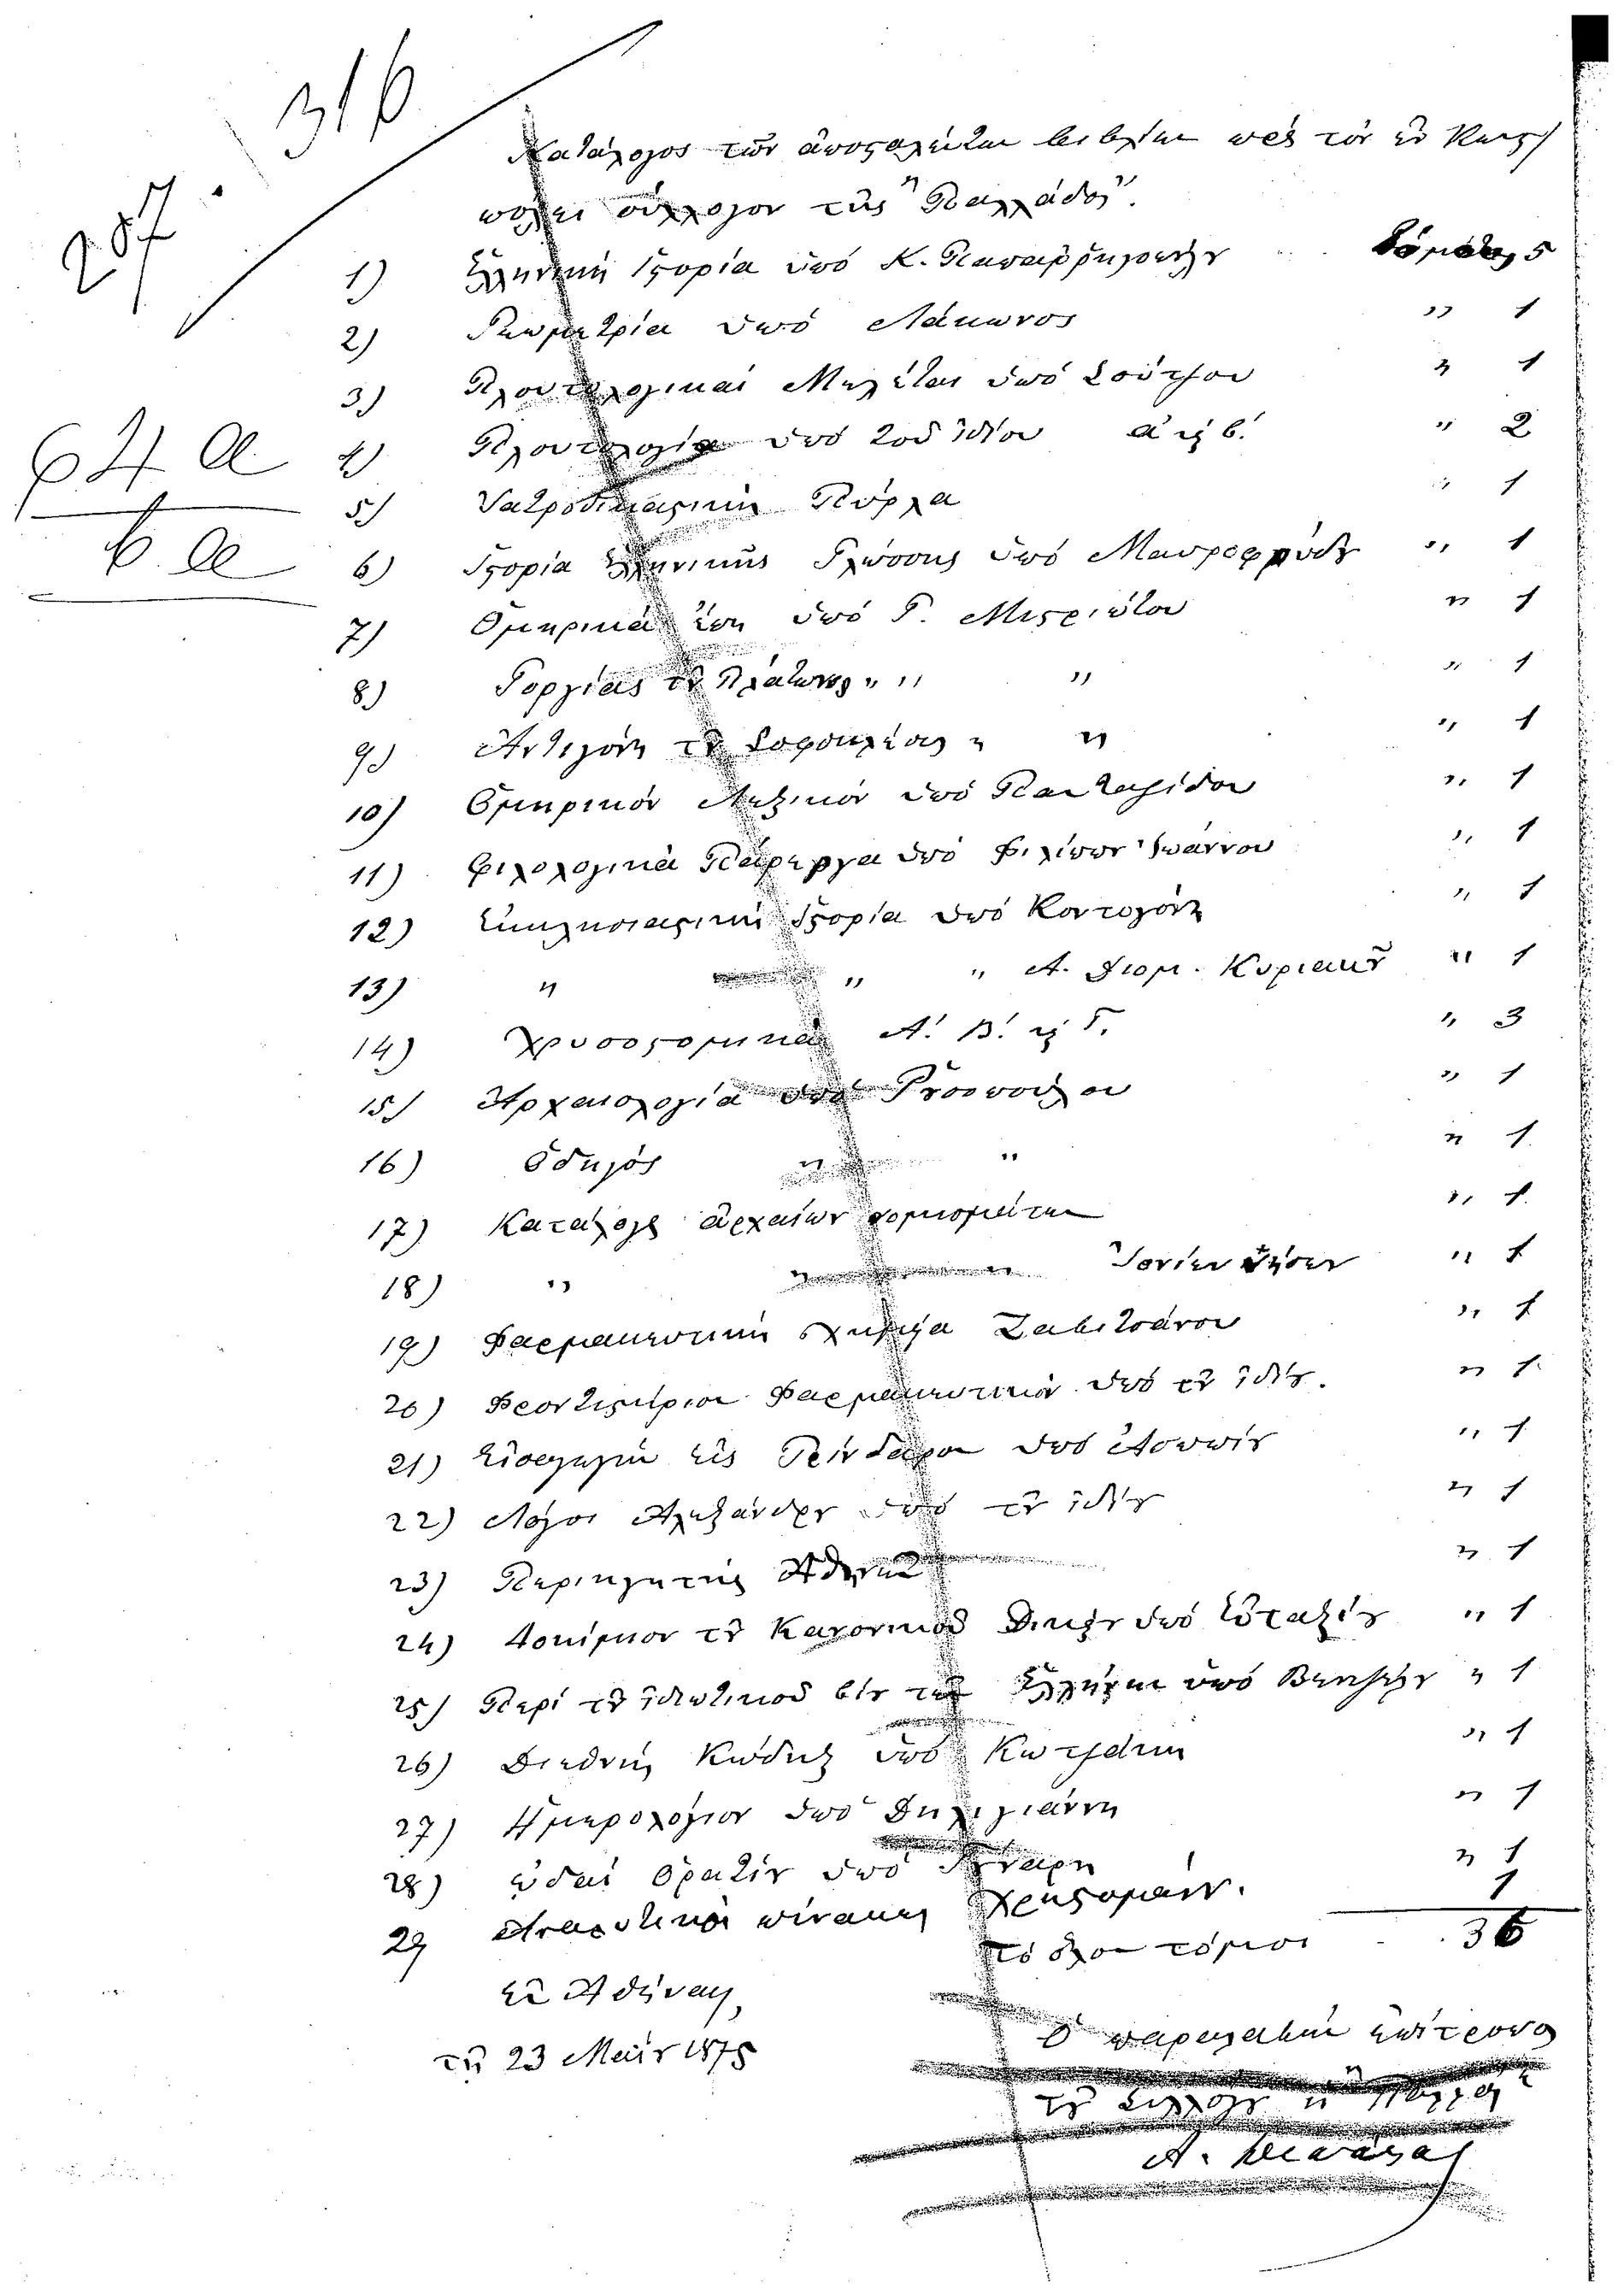 316
287
64 α
6 α
Κατάλογος τῶν ἀποσταλέντων βιβλίων πρὸς τὸν ἐν Κων/
πόλει σύλλογον τῆς "Παλλάδος".
1) Ἑλληνική Ἱστορία ὑπό Κ. Παπαρρηγοπούλου Τόμους 5
2) Γεωμετρία ὑπό Λάκωνος " 1
3) Πλουτολογικαί Μελέται ὑπό Σούτσου " 1
4) Πλουτολογία ὑπό τοῦ ἰδίου α' καὶ β'. " 2
5) Ἰατροδικαστική Πύρλα " 1
6) Ἱστορία Ἑλληνικῆς Γλώσσης ὑπό Μαυροφρύδου " 1
7) Ὁμηρικά ἔπη ὑπό Γ. Μιστριώτου " 1
8) Γοργίας τοῦ Πλάτωνος " " " " 1
9) Ἀντιγόνη τοῦ Σοφοκλέους " " " 1
10) Ὁμηρικόν Λεξικόν ὑπό Πανταζίδου " 1
11) Φιλολογικά Πάρεργα ὑπό Φιλίππου Ἰωάννου " 1
12) Ἐκκλησιαστική Ἱστορία ὑπό Κοντογόνη " 1
13) " " " Α. Διομ. Κυριακοῦ " 1
14) Χρυσοστομικά Α'. Β'. καὶ Γ. " 3
15) Ἀρχαιολογία ὑπό Ρουσοπούλου " 1
16) Ὁδηγός " " " 1
17) Κατάλογος ἀρχαίων νομισμάτων " 1
18) " " " Ἰονίων Νήσων " 1
19) Φαρμακευτική Χημεία Ζαβιτσάνου " 1
20) Φροντιστήριον Φαρμακευτικόν ὑπό τοῦ ἰδίου. " 1
21) Εἰσαγωγή εἰς Πίνδαρον ὑπό Ἀσωπίου " 1
22) Λόγοι Ἀλεξάνδρου ὑπό τοῦ ἰδίου " 1
23) Περιηγητής Ἀθηνῶν " 1
24) Δοκίμιον τοῦ Κανονικοῦ Δικαίου ὑπό Εὐταξίου " 1
25) Περί τοῦ ἰδιωτικοῦ βίου τῶν Ἑλλήνων ὑπό " 1
26) Διεθνής Κώδηξ ὑπό " 1
27) Ἡμερολόγιον ὑπό Δηλιγιάννη " 1
28) ᾠδαί Ὁρατίου ὑπό " 1
29 πίνακες Χρηστομάνου. 1
τό ὅλον τόμοι 36
Ἐν Ἀθήναις,
τῇ 23 Μαΐου 1875
Ὁ παραλαβών ἐπίτροπος
τοῦ Συλλόγου ἡ "Παλλὰς"
Α.